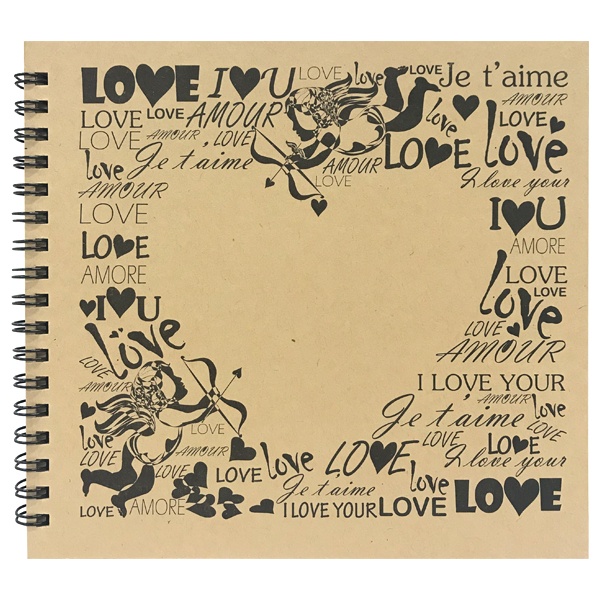 LOVE I U LOVE love LOVE Je t'aime
LOVE LOVE AMOUR love AMOUR LOVE
LOVE AMOUR LOVE AMOUR LOVE love
love Je t'aime AMOUR
AMOUR LOVE I love your
LOVE I U
LOVE AMORE
AMORE LOVE
I U love LOVE
love LOVE
LOVE AMOUR
AMOUR I LOVE YOUR
LOVE AMOUR love
AMOUR Je t'aime love
love AMOUR love LOVE
LOVE LOVE love LOVE I love your
Je t'aime love LOVE
LOVE AMORE I LOVE YOUR LOVE